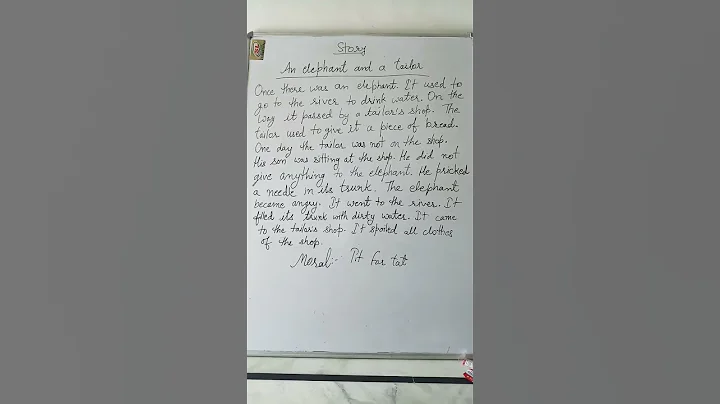 Story
An elephant and a tailor
Once there was an elephant. It used to
go to the river to drink water. On the
way it passed by a tailor's shop. The
tailor used to give it a piece of bread.
One day the tailor was not on the shop.
His son was sitting at the shop. He did not
give anything to the elephant. He pricked
a needle in its trunk. The elephant
became angry. It went to the river. It
filled its trunk with dirty water. It came
to the tailor's shop. It spoiled all clothes
of the shop.
Moral:- Tit for tat